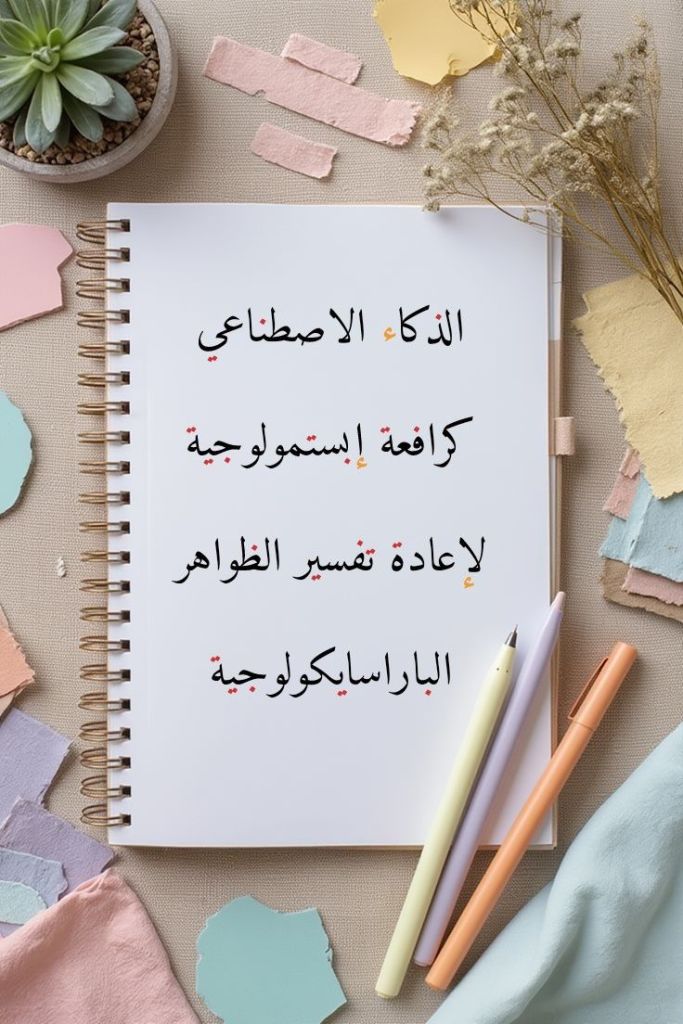 الذكاء الاصطناعي
كرافعة إبستمولوجية
لإعادة تفسير الظواهر
الباراسايكولوجية